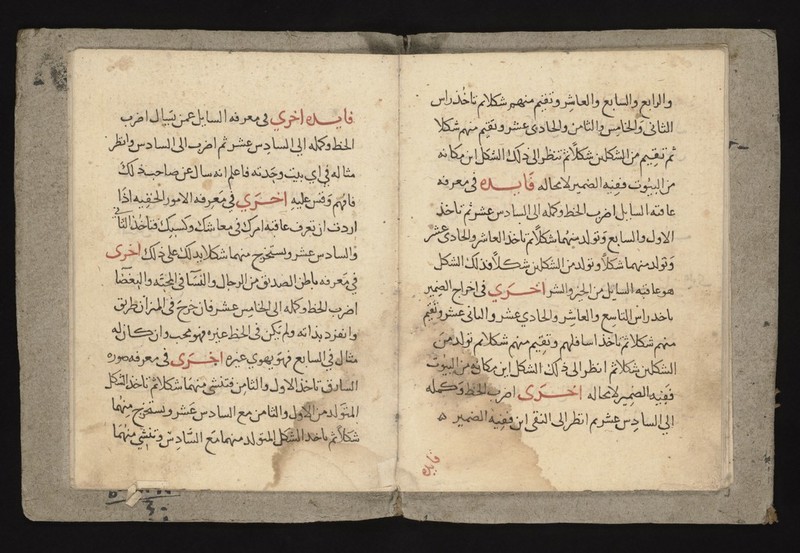 والرابع والسابع والعاشر وتقيم منهم شكلا ثم تاخذ راس
الثانى والخامس والثامن والحادى عشر وتقيم منهم شكلا
ثم تقيم من الشكلين شكلا ثم تنظر الى ذلك الشكل اين مكانه
من البيوت ففيه الضمير لا محاله فايده فى معرفه
عاقبه السايل اضرب الخط وكمله الى السادس عشر ثم تاخذ
الاول والسابع وتولد منهما شكلا ثم تاخذ العاشر والحادى عشر
وتولد منهما شكلا وتولد من الشكلين شكلا فذلك الشكل
هو عاقبه السايل من الخير والشر اخرى فى اخراج الضمير
تاخذ راس التاسع والعاشر والحادي عشر والثانى عشر وتقيم
منهم شكلا ثم تاخذ اسافلهم وتقيم منهم شكلا ثم تولد من
الشكلين شكلا ثم انظر الى ذلك الشكل اين مكانه من البيوت
ففيه الضمير لا محاله اخرى اضرب الخط وكمله
الى السادس عشر ثم انظر الى النقى اين ففيه الضمير ه
فايده
فايده اخرى فى معرفه السايل عمن تسال اضرب
الخط وكمله الى السادس عشر ثم اضرب الى السادس وانظر
مثاله فى اى بيت وجدته فاعلم انه سال عن صاحب ذلك
فافهم وقس عليه اخرى فى معرفه الامور الخفيه اذا
اردت ان تعرف عاقبة امرك فى معاشك وكسبك فتاخذ الثانى
والسادس عشر وتستخرج منهما شكلا يدلك على ذلك اخرى
فى معرفه باطن الصديق من الرجال والنسا فى المحبه والبغضا
اضرب الخط وكمله الى الخامس عشر فان خرج فى الميزان طريق
وانفرد بذاته ولم يكن فى الخط غيره فهو محب وان كان له
مثال فى السابع فهو يهوى غيره اخرى فى معرفه صوره
السارق تاخذ الاول والثامن فتنشى منهما شكلا ثم تاخذ الشكل
المتولد من الاول والثامن مع السادس عشر وتستخرج منهما
شكلا ثم تاخذ الشكل المتولد منهما مع السادس وتنشى منهما